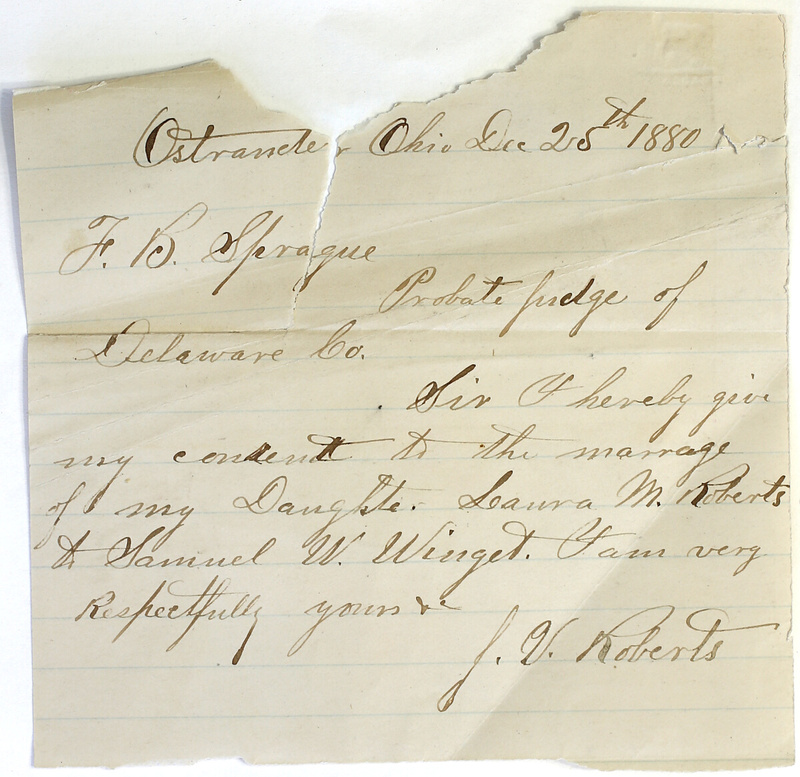 Ostrander Ohio Dec 25th 1880
F. B. Sprague
Probate judge of
Delaware Co.
Sir I hereby give
my consent to the marrage
of my Daughter Laura M. Roberts
to Samuel W. Winget. I am very
Respectfully yours &c
J. V. Roberts